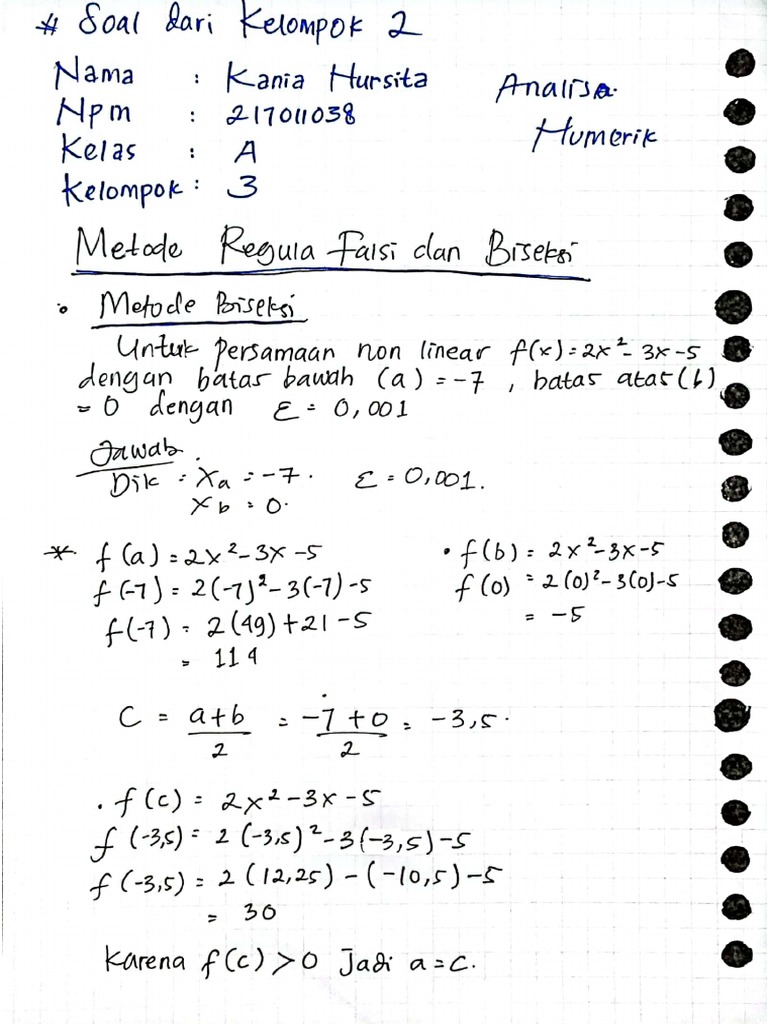 * Soal dari Kelompok 2
Nama : Kania Hursita
Npm : 217011038
Kelas : A
Kelompok : 3
Analisa
Numerik
Metode Regula Falsi dan Biseksi
• Metode Biseksi
Untuk persamaan non linear f(x) = 2x² - 3x - 5
dengan batas bawah (a) = -7 , batas atas (b)
= 0 dengan ε = 0,001
Jawab
Dik : Xa = -7. ε = 0,001.
Xb = 0.
* f(a) = 2x² - 3x - 5
f(-7) = 2(-7)² - 3(-7) - 5
f(-7) = 2(49) + 21 - 5
= 114
• f(b) = 2x² - 3x - 5
f(0) = 2(0)² - 3(0) - 5
= -5
C = a+b/2 = -7+0/2 = -3,5.
• f(c) = 2x² - 3x - 5
f(-3,5) = 2(-3,5)² - 3(-3,5) - 5
f(-3,5) = 2(12,25) - (-10,5) - 5
= 30
Karena f(c) > 0 Jadi a = c.